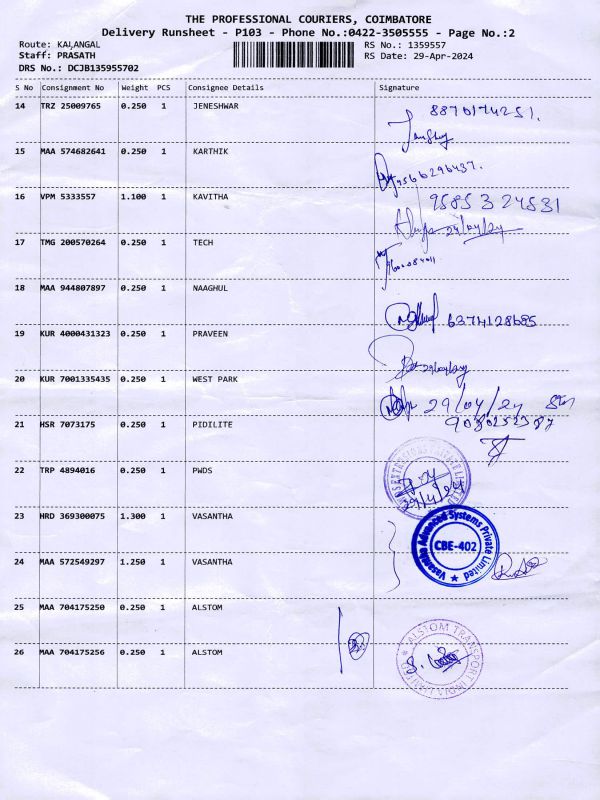 THE PROFESSIONAL COURIERS, COIMBATORE
Delivery Runsheet - P103 - Phone No.:0422-3505555 - Page No.:2
Route: KALANGAL
Staff: PRASATH
DRS No.: DCJB135955702
RS No.: 1359557
RS Date: 29-Apr-2024
S No Consignment No Weight PCS Consignee Details Signature
14 TRZ 25009765 0.250 1 JENESHWAR
8870174251.
15 MAA 574682641 0.250 1 KARTHIK
9566296437.
16 VPM 5333557 1.100 1 KAVITHA 9585324531
29/04/24
17 TMG 200570264 0.250 1 TECH
18 MAA 944807897 0.250 1 NAAGHUL
6374128685
19 KUR 4000431323 0.250 1 PRAVEEN
20 KUR 7001335435 0.250 1 WEST PARK
29/04/24
21 HSR 7073175 0.250 1 PIDILITE
22 TRP 4894016 0.250 1 PWDS
29/4/24
23 HRD 369300075 1.300 1 VASANTHA
Vasantha Advanced Systems Private Limited
CBE-402
24 MAA 572549297 1.250 1 VASANTHA
25 MAA 704175250 0.250 1 ALSTOM
26 MAA 704175256 0.250 1 ALSTOM
ALSTOM TRANSPORT INDIA LIMITED